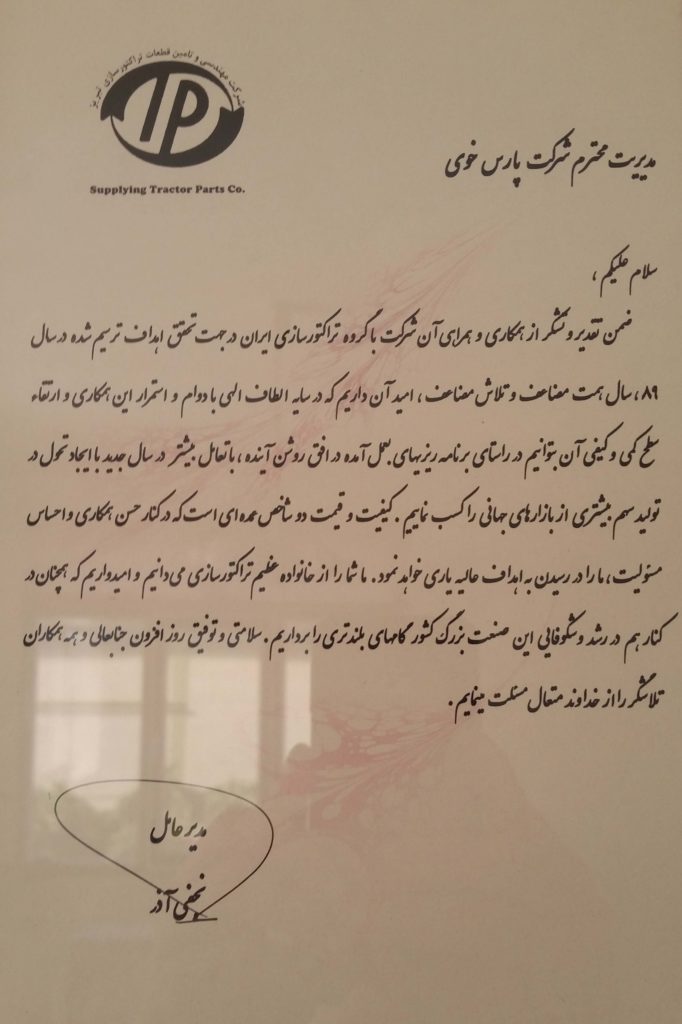 شرکت مهندسی و تامین قطعات تراکتورسازی تبریز
TP
Supplying Tractor Parts Co.
مدیریت محترم شرکت پارس خوی
سلام علیکم ،
ضمن تقدیر و تشکر از همکاری و همرای آن شرکت با گروه تراکتورسازی ایران در جهت تحقق اهداف ترسیم شده در سال
۸۹ ، سال همت مضاعف و تلاش مضاعف ، امید آن داریم که در سایه الطاف الهی با دوام و استمرار این همکاری و ارتقاء
سطح کمی و کیفی آن بتوانیم در راستای برنامه ریزیهای بعمل آمده در افق روشن آینده ، با تعامل بیشتر در سال جدید با ایجاد تحول در
تولید سهم بیشتری از بازارهای جهانی را کسب نماییم . کیفیت و قیمت دو شاخص عمده ای است که در کنار حسن همکاری و احساس
مسئولیت ، ما را در رسیدن به اهداف عالیه یاری خواهد نمود . ما شما را از خانواده عظیم تراکتورسازی می دانیم و امیدواریم که همچنان در
کنار هم در رشد و شکوفایی این صنعت بزرگ کشور گامهای بلندتری را برداریم . سلامتی و توفیق روز افزون جنابعالی و همه همکاران
تلاشگر را از خداوند متعال مسئلت مینمایم .
مدیر عامل
نجفی آذر